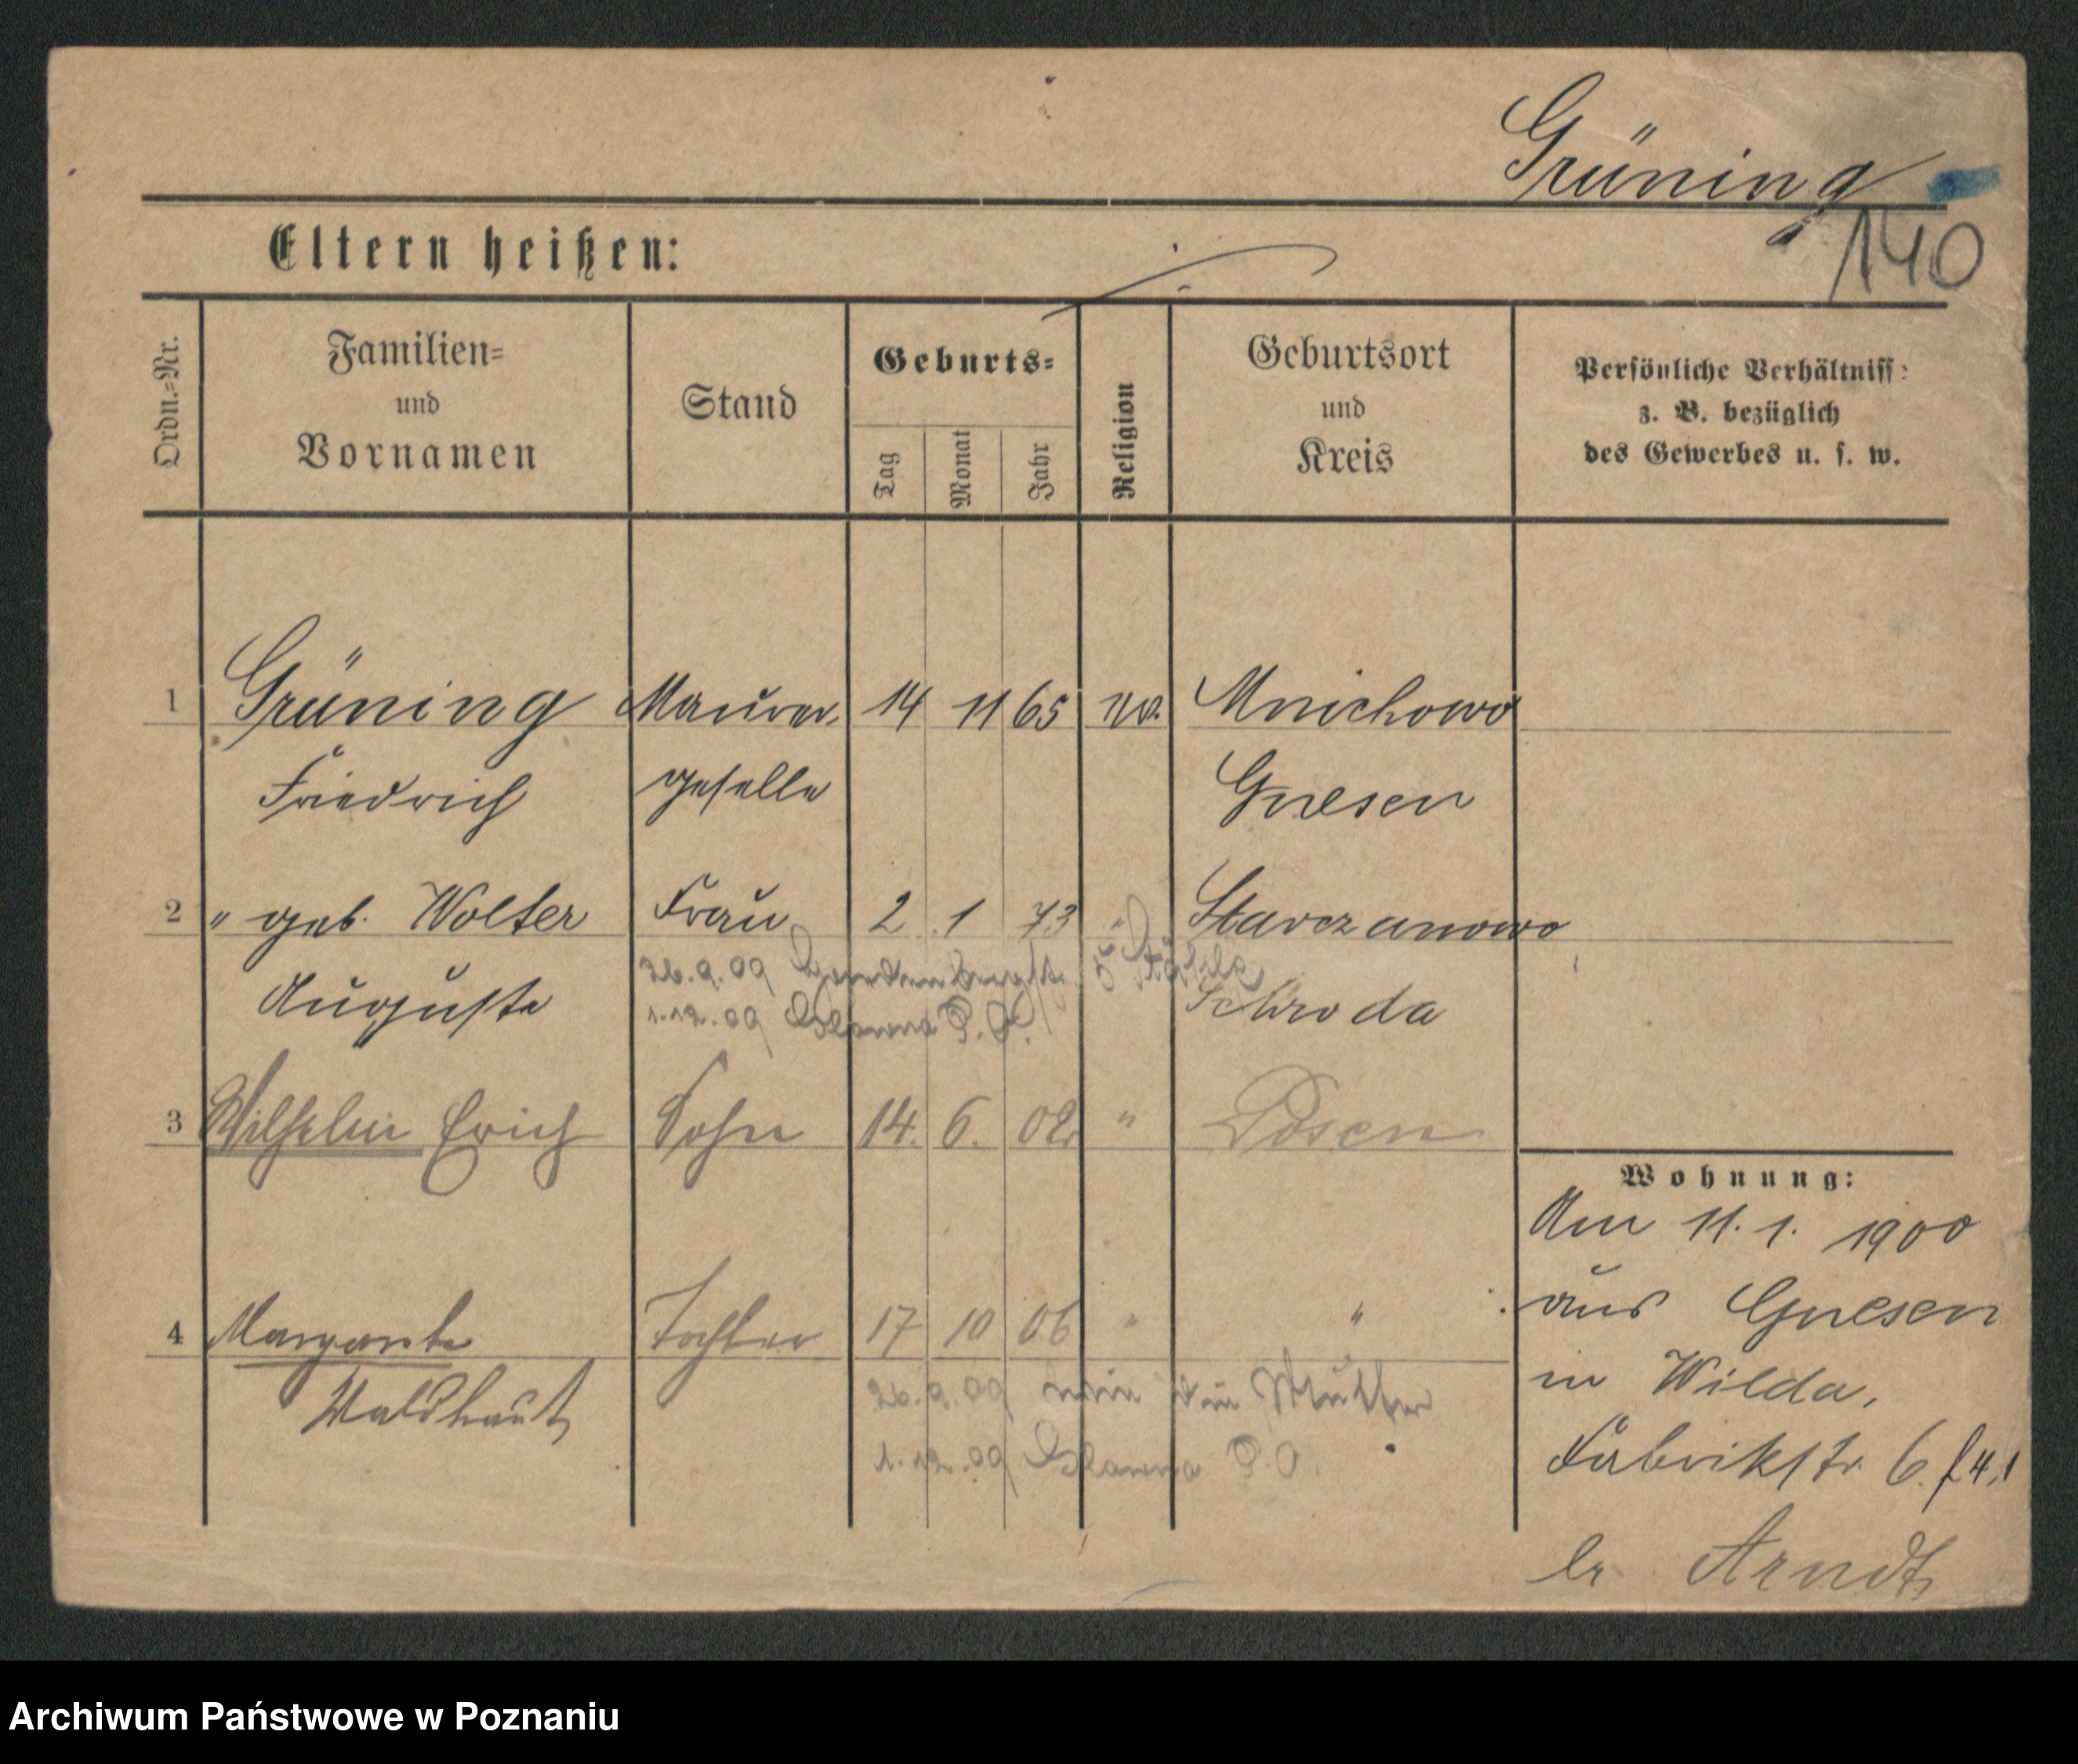 Grüning
140
Eltern heißen:
Ordn.=Nr.
Familien=
und
Vornamen
Stand
Geburts=
Tag
Monat
Jahr
Religion
Geburtsort
und
Kreis
Persönliche Verhältniss:
z. B. bezüglich
des Gewerbes u. s. w.
1 Grüning Maurer 14 11 65 ev. Mnichowo
Friedrich geselle Gnesen
2 " geb. Wolter Frau 2 1 73 " Starczanowo
26.9.09
Auguste Schroda
1.12.09 P. O.
3 Wilhelm Erich Sohn 14. 6. 02 " Posen
Wohnung:
Am 11. 1. 1900
aus Gnesen
in Wilda,
Fabrikstr. 6.
br Arndt
4 Margarete Tochter 17 10 06 " "
26.9.09 Mutter
1.12.09 P. O.
Archiwum Państwowe w Poznaniu